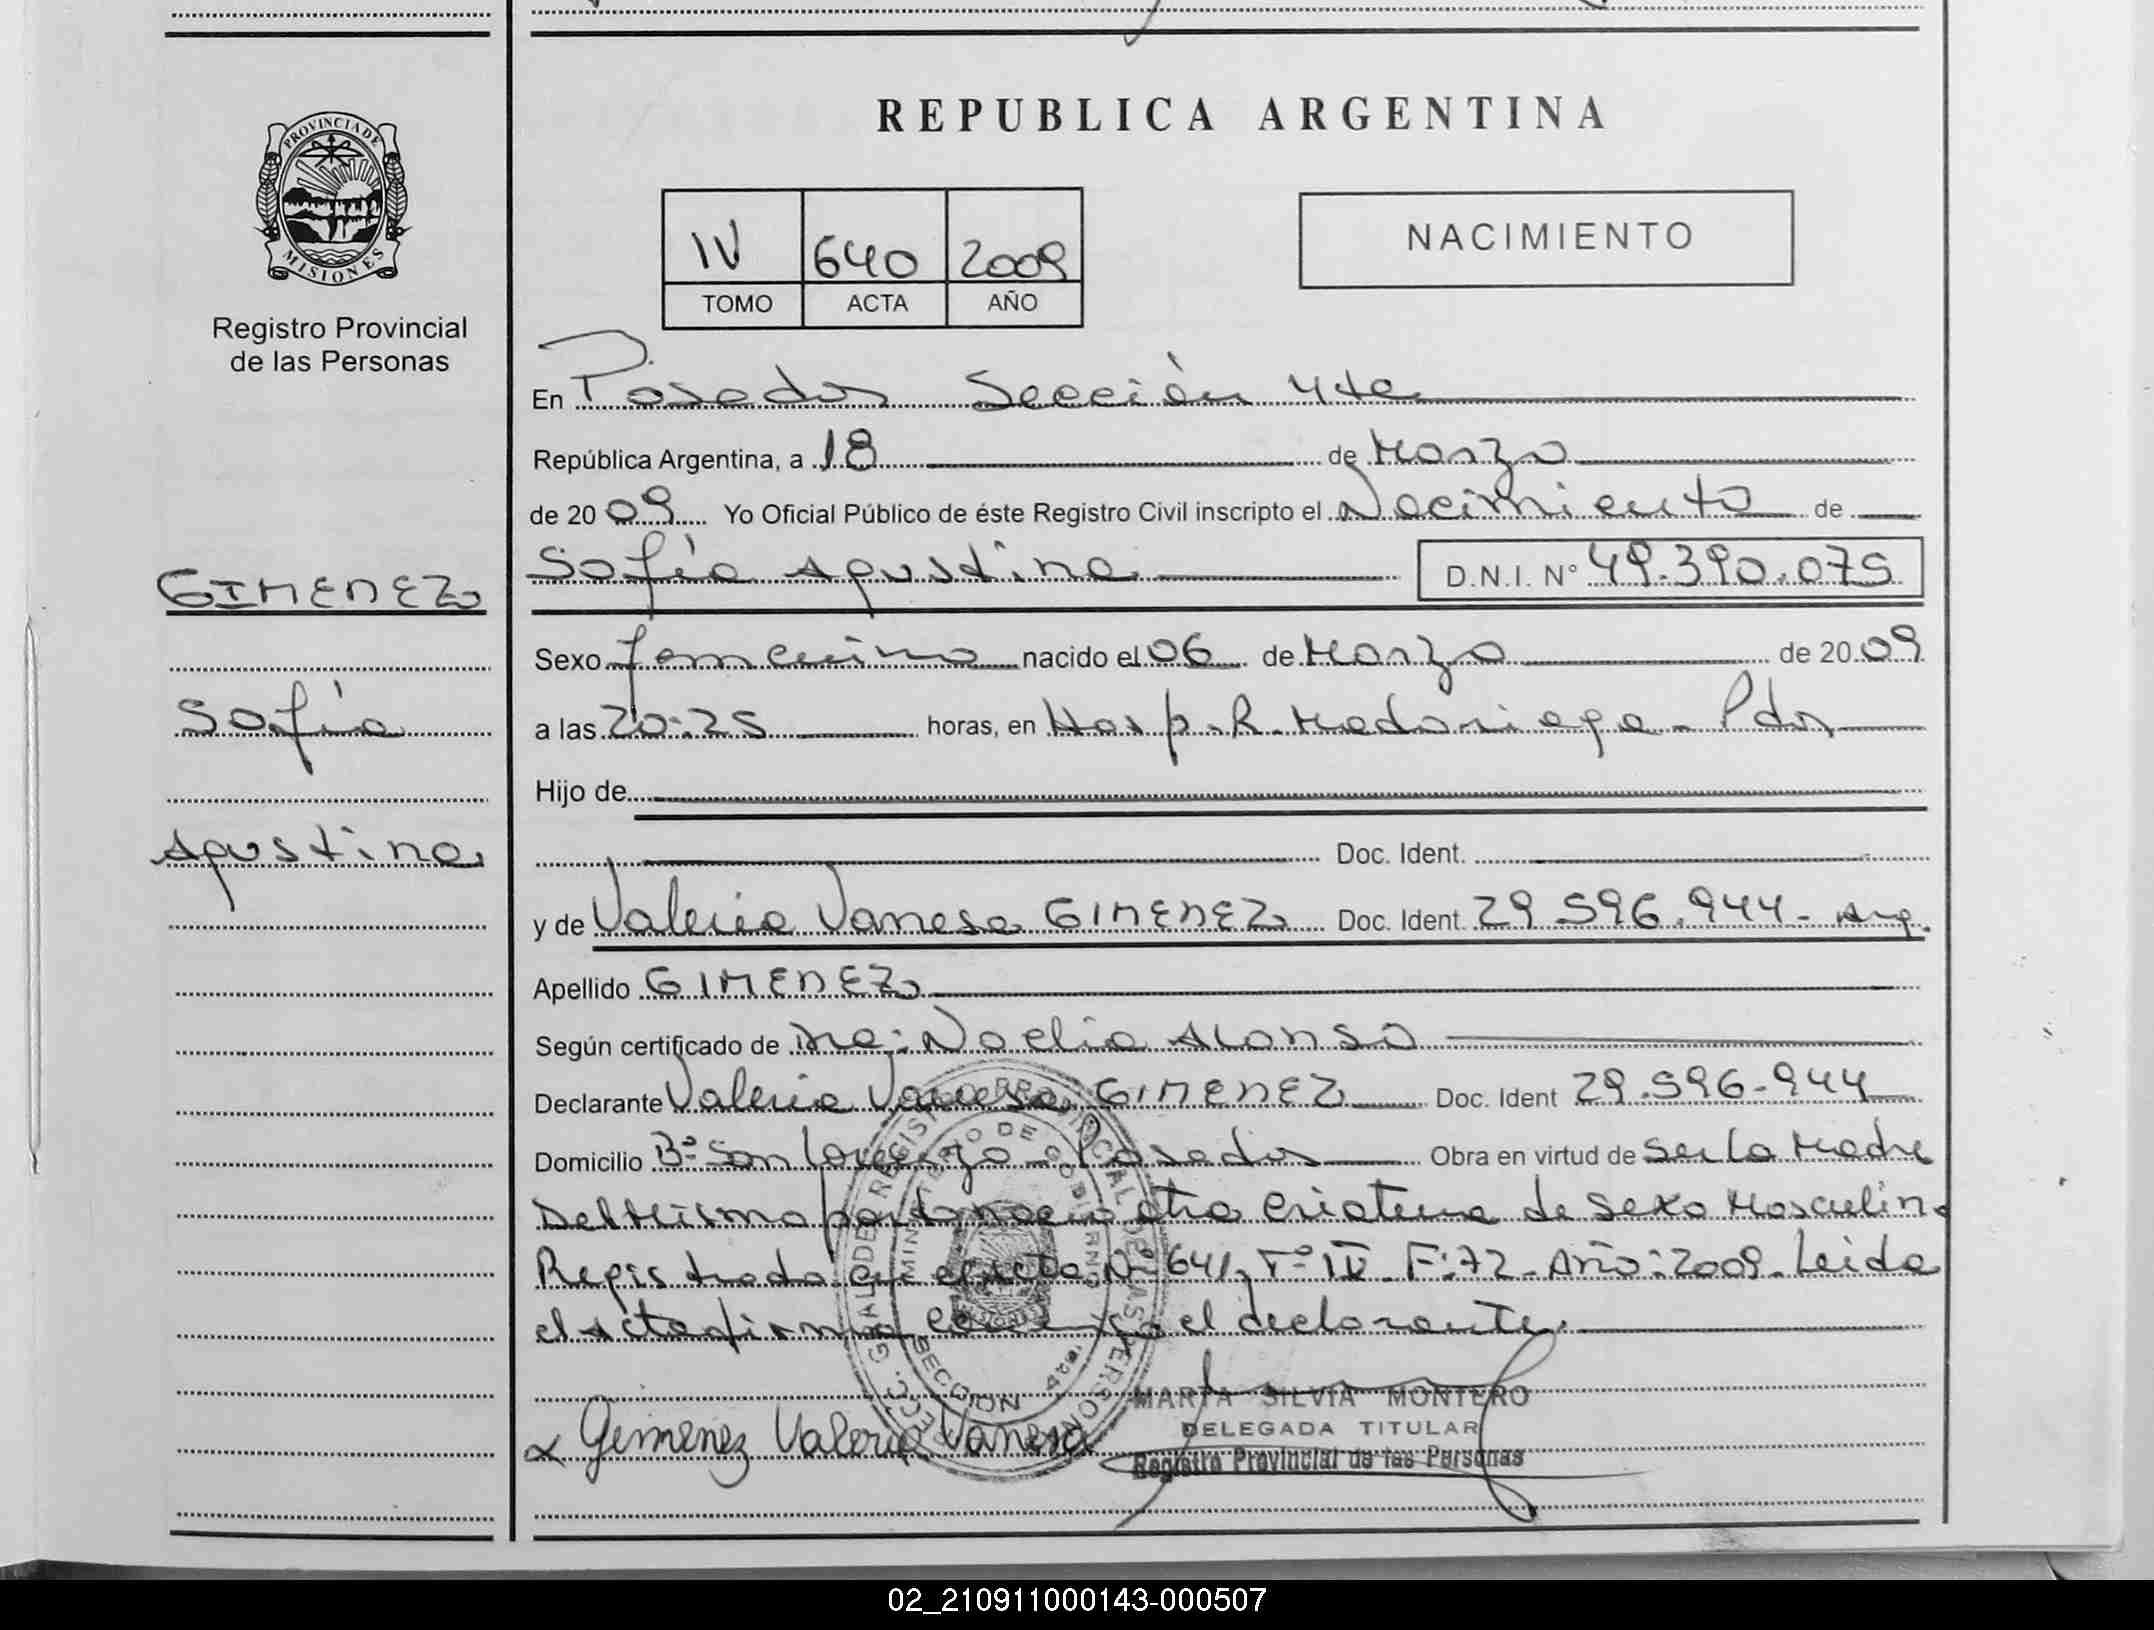 REPUBLICA ARGENTINA
PROVINCIA DE
MISIONES
Registro Provincial
de las Personas
IV 640 2009
TOMO ACTA AÑO
NACIMIENTO
En Posadas Sección 4ta
República Argentina, a 18 de Marzo
de 2009 Yo Oficial Público de éste Registro Civil inscripto el Nacimiento de
GIMENEZ
Sofía Agustina D.N.I. Nº 49.390.075
Sexo femenino nacido el 06 de Marzo de 2009
Sofía
a las 20:25 horas, en Hosp. R. Madariaga - Pdas
Hijo de
Agustina
Doc. Ident.
y de Valeria Vanesa GIMENEZ Doc. Ident. 29.596.944 - Arg.
Apellido GIMENEZ
Según certificado de Noelia Alonso
Declarante Valeria Vanesa GIMENEZ Doc. Ident 29.596-944
Domicilio Bº San Lorenzo - Posadas Obra en virtud de ser la Madre
Del Mismo parto nacio otra criatura de sexo Masculino
Registrado en el acta Nº 641, Tº IV F:72 - Año: 2009 - Leida
el acta firma el declarante.
MINISTERIO DE GOBIERNO
SECCION 4ta.
MARTA SILVIA MONTERO
DELEGADA TITULAR
Registro Provincial de las Personas
x Gimenez Valeria Vanesa
02_210911000143-000507